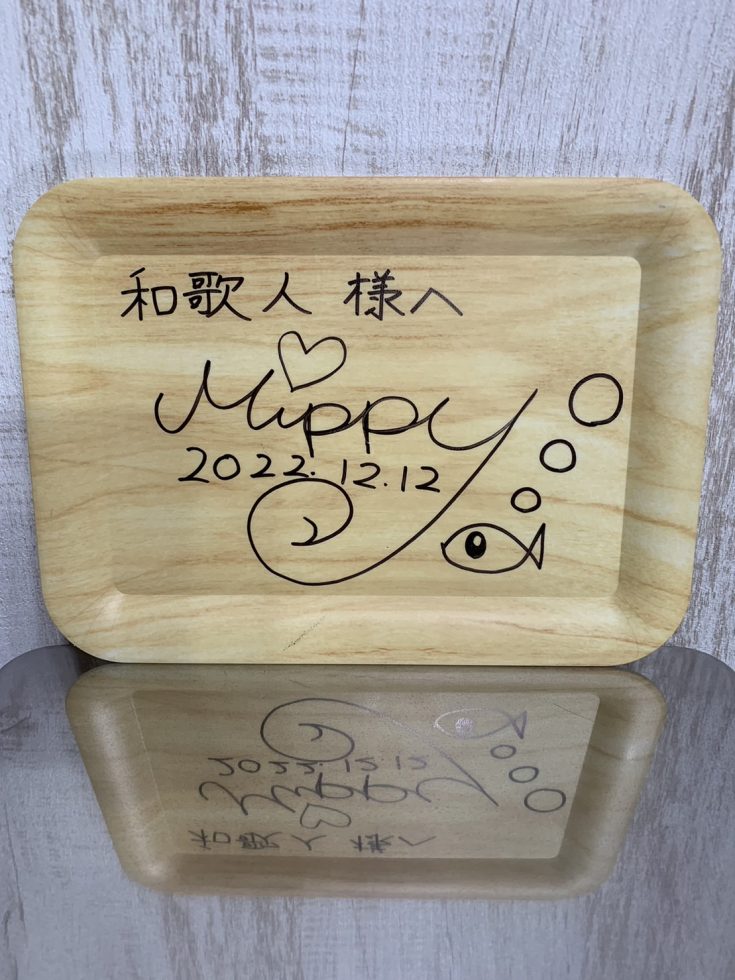 和歌人 様へ
Mippy
2022.12.12